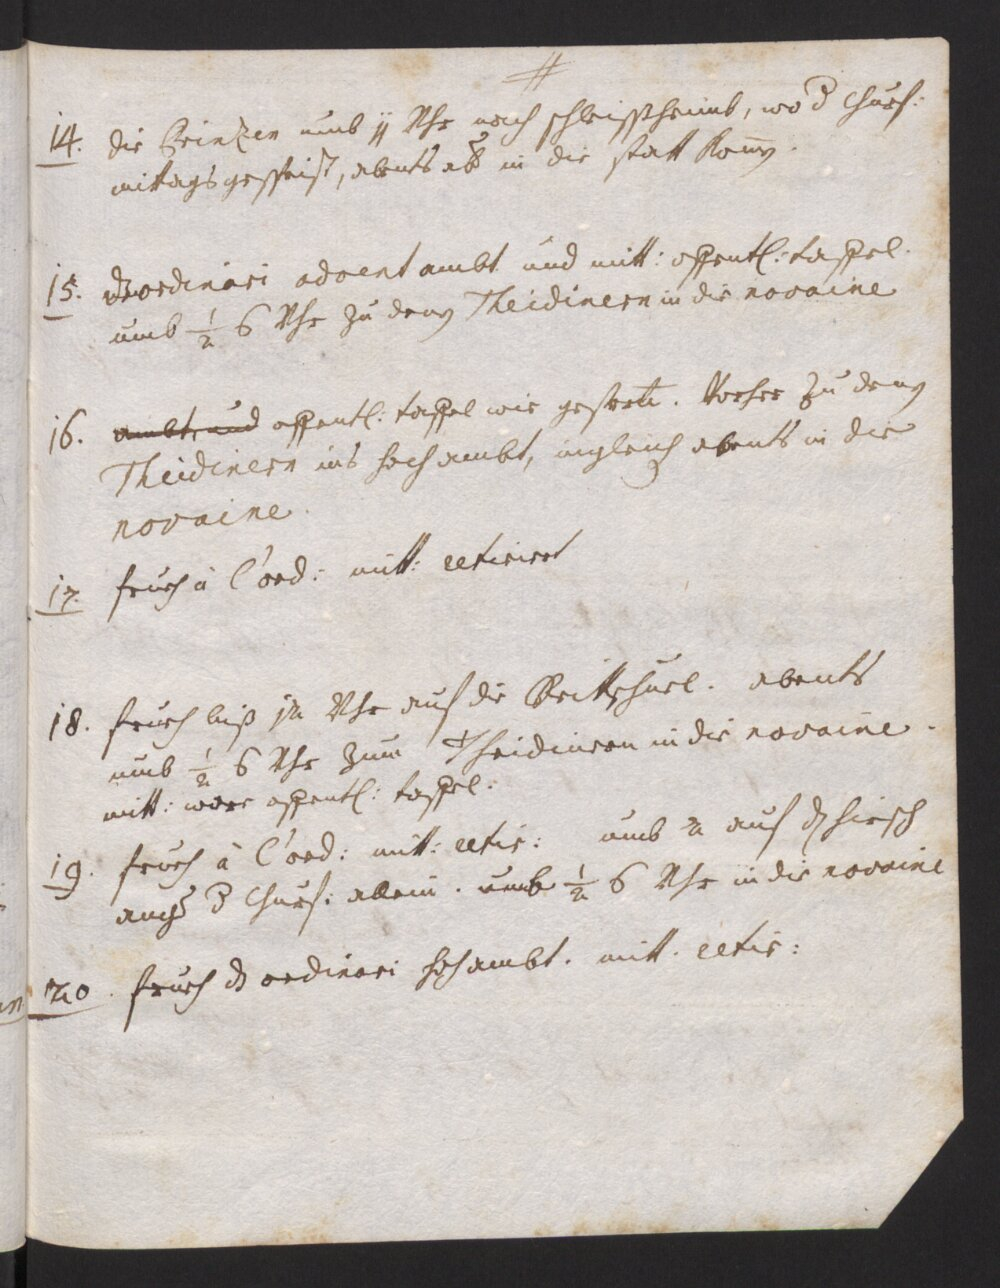 14. die Prinzen umb 11 Uhr nach schleissheimb, wo d Churf:
mittags gespeist, abents aber in die statt komen.
15. das ordinari advent ambt und mitt: offentl: taffel.
umb 1/2 6 Uhr zu denen Theidinern in die novaine
16. ambt, und offentl: taffel wie gestert. Vorher zu denen
Theidinern ins hoch ambt, ingleich abents in die
novaine.
17. frueh à l'ord: mitt: retirirt
18. frueh biß 12 Uhr auf die Reittschuel. abents
umb 1/2 6 Uhr zum Theidinern in die novaine.
mitt: ware offentl: taffel.
19. frueh à l'ord: mitt: retir: umb 2 auf dh hirsch
d Churf: allein. umb 1/2 6 Uhr in die novaine
20. frueh ds ordinari hochambt. mitt. retir: